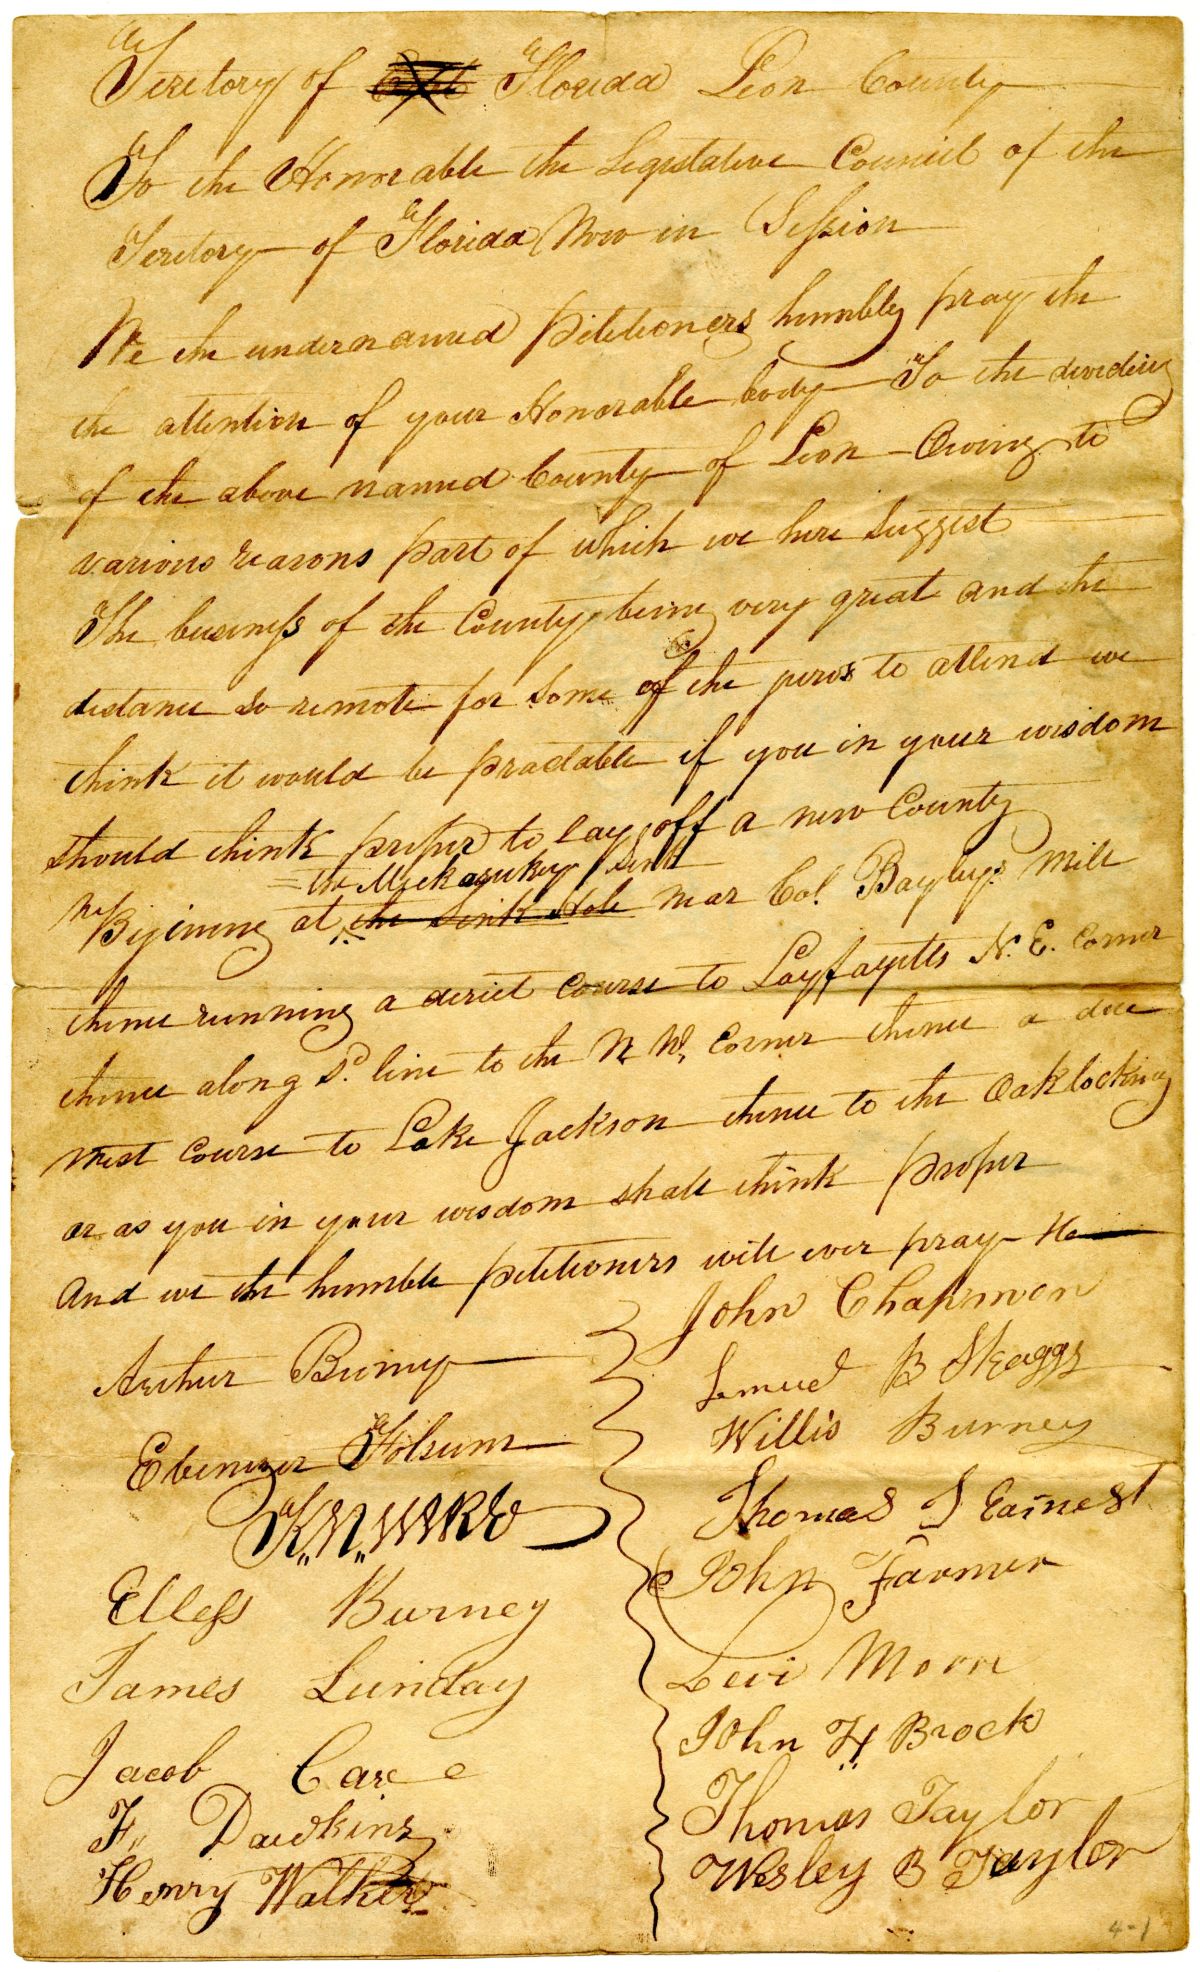 Teritory of Florida Leon County
To the Honorable the Legistative Council of the
Teritory of Florida Now in Session
We the undernamed petitioners humbley pray the
the attention of your Honorable body To the devideing
of the above named County of Leon - Owing to
various reasons part of which we here suggest
The business of the County being very great and the
distance so remote for some of the jurors to attend we
think it would be practable if you in your wisdom
should think proper to lay off a new County
= the Mickasukey Sink
Begining at the Sink Hole near Col. Bayleys Mill
thence running a direct course to Layfayetts N. E. Corner
thence along sd. line to the N. W. Corner thence a due
west course to Lake Jackson thence to the Oaklockney
or as you in your wisdom shall think proper
And we the humble petitioners will ever pray &c
John Chapmon
Arthur Burney
Lemuel B Skaggs
Willis Burney
Ebenezer Folsum
Thomas J Earnest
John Farmer
Elless Burney
Levi Moore
James Lunday
John H Brock
Jacob Care
Thomas Taylor
F. Dawkins
Wesley B Taylor
Henry Walker
4-1